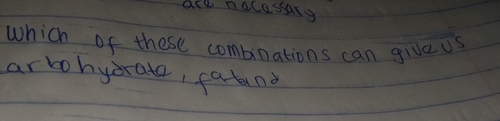 are necessary
Which of these combinations can give us
arbohydrate, fat and